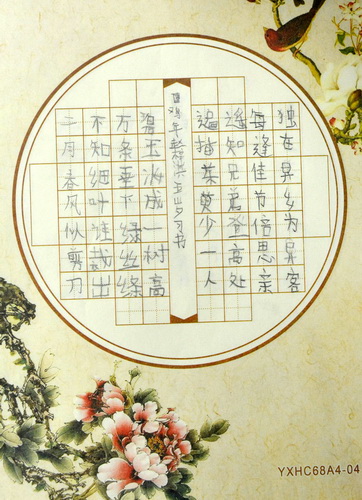 独在异乡为异客
每逢佳节倍思亲
遥知兄弟登高处
遍插茱萸少一人
鸡年 习书
碧玉妆成一树高
万条垂下绿丝绦
不知细叶谁裁出
二月春风似剪刀
YXHC68A4-04